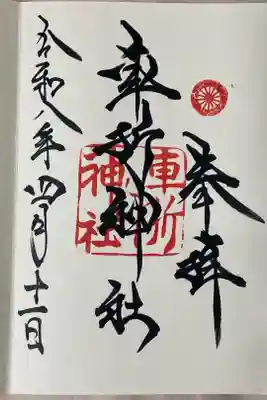 奉拝
車折神社
車折神社
令和八年四月十一日